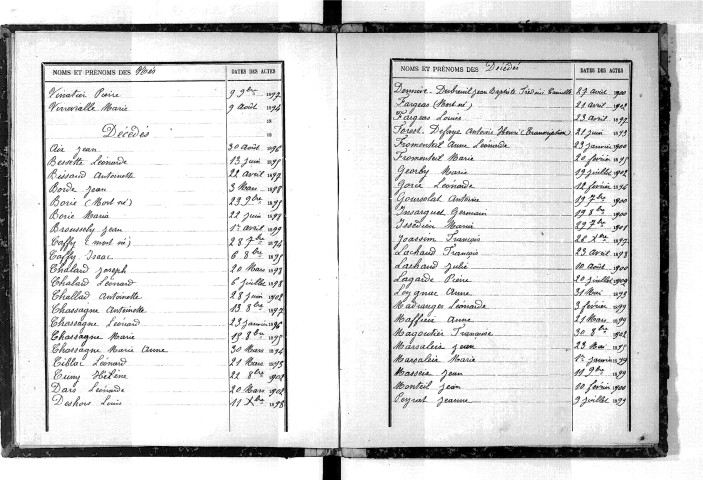 NOMS ET PRÉNOMS DES Nés DATES DES ACTES
Vinatier Pierre 9 9bre 1897
Virevialle Marie 9 Août 1894
18
Décédés 18
Aix Jean 30 Août 1896
Bessette Léonarde 13 juin 1895
Bissaud Antoinette 22 avril 1897
Borde Jean 3 Mars 1898
Borie (Mort né) 23 9bre 1895
Borie Maria 21 juin 1898
Broussely Jean 1er avril 1899
Caffy (mort né) 28 7bre 1894
Caffy Isaac 6 8bre 1895
Chalard Joseph 20 Mars 1893
Chalard Léonard 6 juillet 1898
Challard Antoinette 28 juin 1902
Chassagne Antoinette 13 8bre 1897
Chassagne Léonard 23 janvier 1896
Chassagne Marie 18 8bre 1895
Chassagne Marie Anne 30 Mars 1894
Ciblac Léonard 21 Mars 1895
Cueny Hélène 22 8bre 1902
Dars Léonarde 20 Mars 1902
Deshors Louis 11 Xbre 1898
NOMS ET PRÉNOMS DES Décédés DATES DES ACTES
Dubreuil Jean Baptiste Frédéric 27 Août 1900
Fargeas (Mort né) 21 avril 1902
Fargeas Louise 23 avril 1897
Forest Defaye Antoine Henri (Transcription) 21 juin 1893
Fromenteil Anne Léonarde 23 janvier 1900
Fromenteil Marie 20 février 1895
Georby Marie 19 juillet 1902
Gorie Léonarde 12 février 1896
Goursolat Antoine 19 7bre 1900
Insarguet Germain 19 8bre 1900
Issedien Maria 27 7bre 1901
Joassim François 28 Xbre 1897
Lachaud François 23 avril 1893
Lachaud Julie 10 Août 1900
Lagarde Pierre 20 juillet
Loygnac Anne 31 Mai 1893
Madranges Léonarde 3 février 1899
Maffiere Anne 21 Mars 1899
Magoutier Françoise 30 8bre 1902
Marsaleix Jean 23 Mai 1895
Marsaleix Marie 1er janvier 1899
Masseix Jean 11 9bre 1899
Monteil Jean 10 février 1900
Peyrat Jeanne 9 juillet 1899